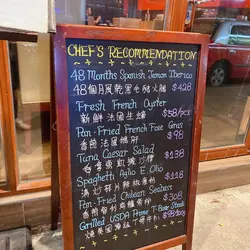 CHEF'S RECOMMENDATION
48 Months Spanish Jamon Iberico
48個月風乾 $428
Fresh French Oyster
新鮮法國生蠔 $58/pcs
Pan-Fried French Foie Gras
香煎法國鴨肝 $98
Tuna Caesar Salad
吞拿魚凱撒沙律 $138
Spaghetti Aglio E. Olio
$118
Pan-Fried Chilean Seabass
$308
Grilled USDA Prime T-Bone Steak